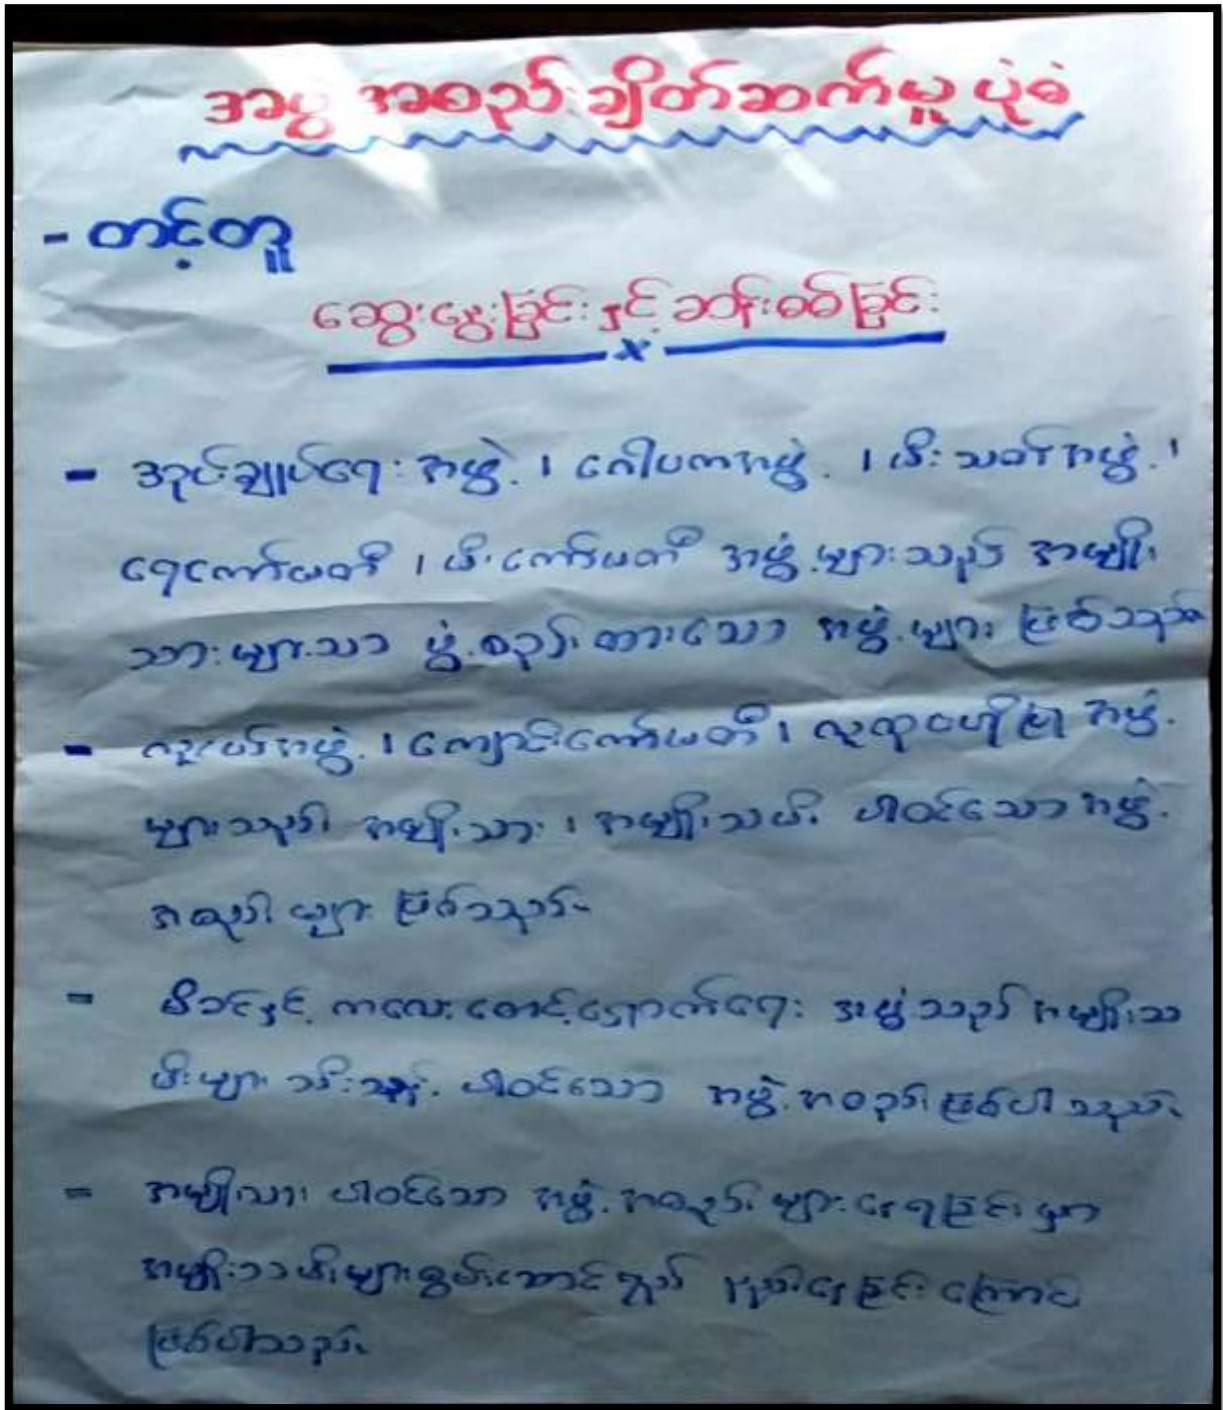 အဖွဲ့အစည်းချိတ်ဆက်မှုပုံစံ
- တင့်တူ
ဆွေးနွေးခြင်းနှင့် ဆန်းစစ်ခြင်း
- အုပ်ချုပ်ရေးအဖွဲ့၊ ဂေါပကအဖွဲ့၊ မီးသတ်အဖွဲ့၊
ရေကော်မတီ၊ မီးကော်မတီ အဖွဲ့များသည် အမျိုး
သားများသာ ဖွဲ့စည်းထားသော အဖွဲ့များ ဖြစ်သည်။
- လူငယ်အဖွဲ့၊ ကျောင်းကော်မတီ၊ လူထုဗဟိုပြု အဖွဲ့
များသည် အမျိုးသား၊ အမျိုးသမီး ပါဝင်သော အဖွဲ့
အစည်းများ ဖြစ်သည်။
- မိခင်နှင့် ကလေး စောင့်ရှောက်ရေး အဖွဲ့သည် အမျိုးသ
မီးများ သီးသန့် ပါဝင်သော အဖွဲ့အစည်းဖြစ်ပါသည်။
- အမျိုးသား ပါဝင်သော အဖွဲ့အစည်းများနေရခြင်းမှာ
အမျိုးသမီးများစွမ်းဆောင်ရည် နည်းနေခြင်းကြောင့်
ဖြစ်ပါသည်။